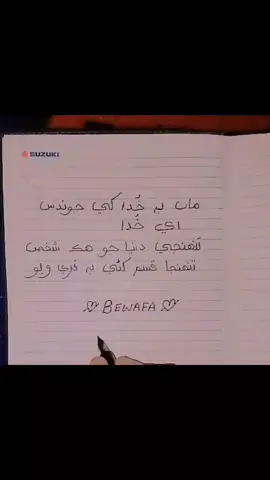 SUZUKI
مان بہ خُدا کي چوندس
اي خُدا
تنهنجي دنيا جو هڪ شخص
تنهنجا قسم کڻي بہ ڦري ويو
BEWAFA